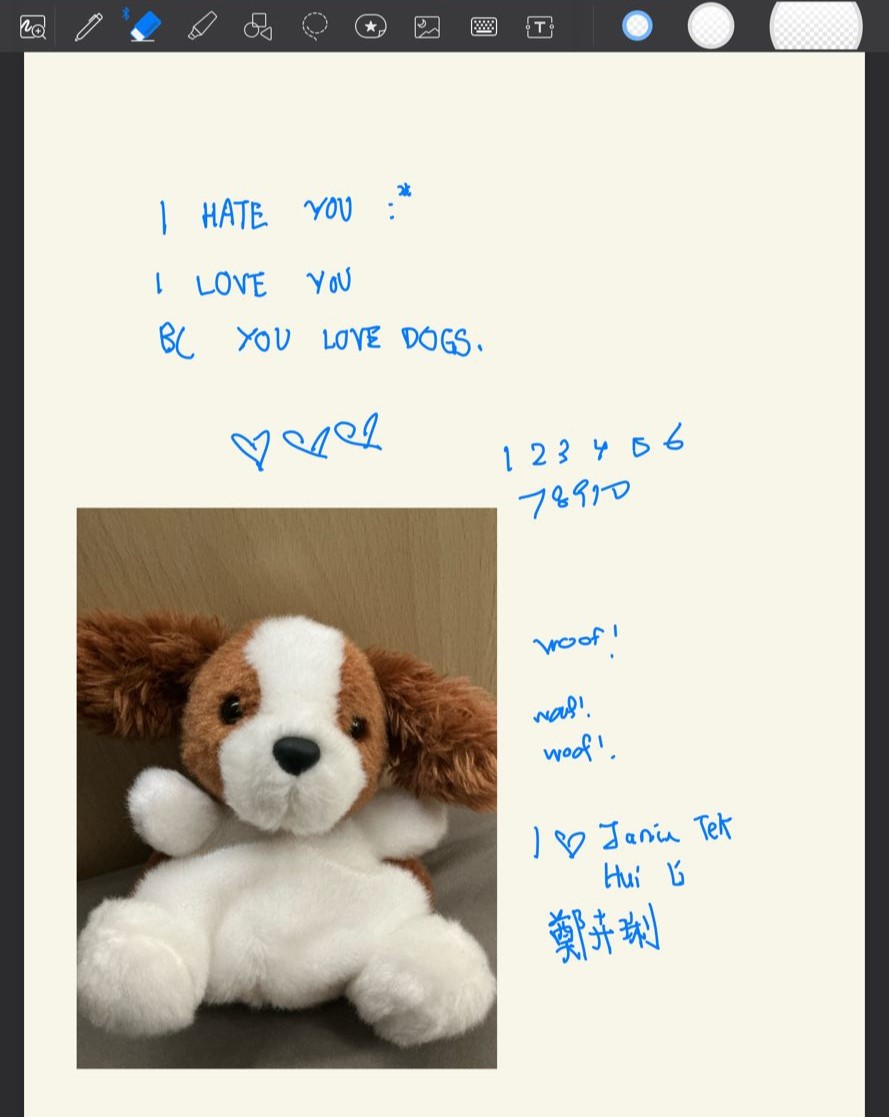 I HATE YOU :*
I LOVE YOU
BC YOU LOVE DOGS.
1 2 3 4 5 6
7 8 9 10
woof!
woof!
woof!
I ♡ Tek
Hui
鄭卉